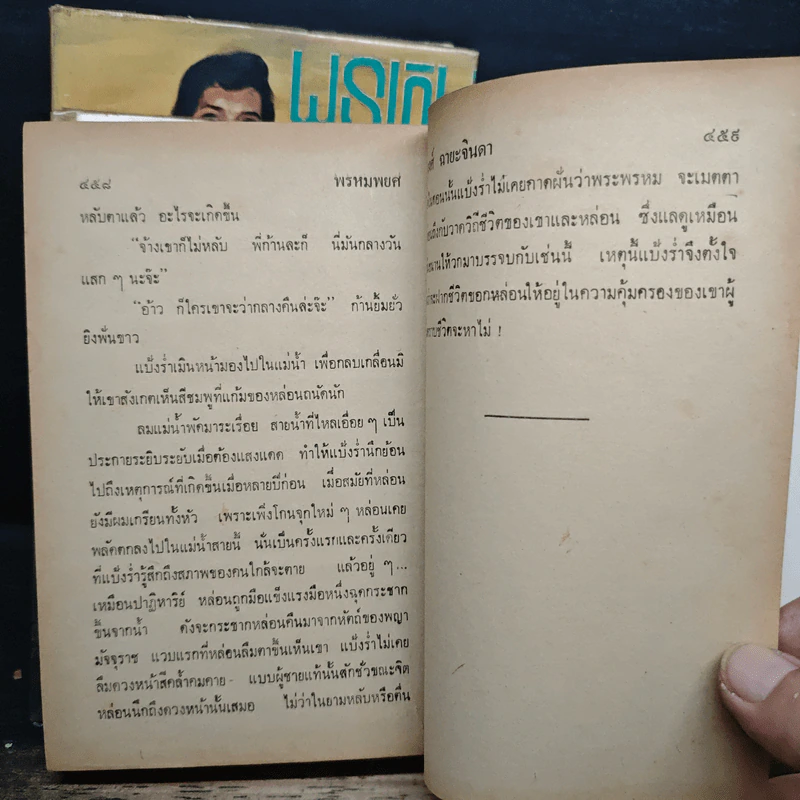 ๔๕๘ พรหมพยศ
หลับตาแล้ว อะไรจะเกิดขึ้น
“จ้างเขาก็ไม่หลับ พี่ก้านละก็ นี่มันกลางวัน
แสก ๆ นะจ๊ะ”
“อ้าว ก็ใครเขาจะว่ากลางคืนล่ะจ๊ะ” ก้านยิ้มยั่ว
ยิงฟันขาว
แบ้งร่ำเมินหน้ามองไปในแม่น้ำ เพื่อกลบเกลื่อนมิ
ให้เขาสังเกตเห็นสีชมพูที่แก้มของหล่อนถนัดนัก
ลมแม่น้ำพัดมาระเรื่อย สายน้ำที่ไหลเอื่อย ๆ เป็น
ประกายระยิบระยับเมื่อต้องแสงแดด ทำให้แบ้งร่ำนึกย้อน
ไปถึงเหตุการณ์ที่เกิดขึ้นเมื่อหลายปีก่อน เมื่อสมัยที่หล่อน
ยังมีผมเกรียนทั้งหัว เพราะเพิ่งโกนจุกใหม่ ๆ หล่อนเคย
พลัดตกลงไปในแม่น้ำสายนี้ นั่นเป็นครั้งแรกและครั้งเดียว
ที่แบ้งร่ำรู้สึกถึงสภาพของคนใกล้จะตาย แล้วอยู่ ๆ...
เหมือนปาฏิหาริย์ หล่อนถูกมือแข็งแรงมือหนึ่งฉุดกระชาก
ขึ้นจากน้ำ ดังจะกระชากหล่อนคืนมาจากหัตถ์ของพญา
มัจจุราช แวบแรกที่หล่อนลืมตาขึ้นเห็นเขา แบ้งร่ำไม่เคย
ลืมดวงหน้าสีคล้ำคมคาย แบบผู้ชายแท้นั้นสักชั่วขณะจิต
หล่อนนึกถึงดวงหน้านั้นเสมอ ไม่ว่าในยามหลับหรือตื่น
ฉายะจินดา ๔๕๙
แบ้งร่ำไม่เคยคาดฝันว่าพระพรหม จะเมตตา
วาดวิถีชีวิตของเขาและหล่อน ซึ่งแลดูเหมือน
ให้วกมาบรรจบกันเช่นนี้ เหตุนี้แบ้งร่ำจึงตั้งใจ
ชีวิตของหล่อนให้อยู่ในความคุ้มครองของเขาผู้
ชีวิตจะหาไม่ !